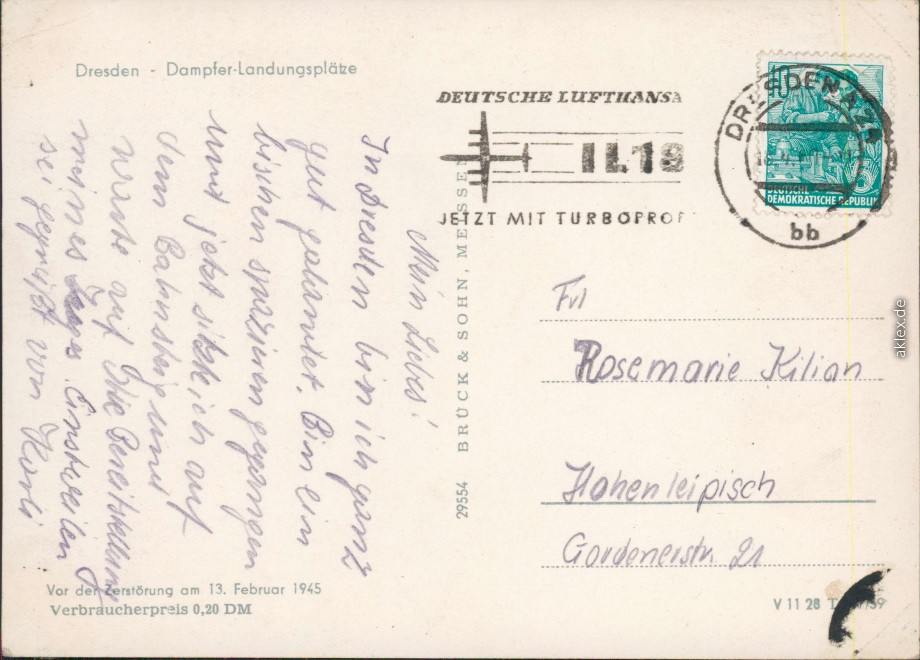 Dresden - Dampfer-Landungsplätze
DEUTSCHE LUFTHANSA
IL 18
JETZT MIT TURBOPROP
DRESDEN A 24
bb
10
DEUTSCHE
DEMOKRATISCHE REPUBLIK
Mein Liebes!
In Dresden bin ich ganz
gut gelandet. Bin ein
bischen spazieren gegangen
und jetzt sitze ich auf
dem Bahnsteig und
warte auf die Bereitstellung
meines Zuges Einstweilen
sei gegrüßt von
29554 BRÜCK & SOHN, MEISSEN
Frl
Rosemarie Kilian
Hohenleipisch
21
Vor der Zerstörung am 13. Februar 1945
Verbraucherpreis 0,20 DM
V 11 28
aklex.de